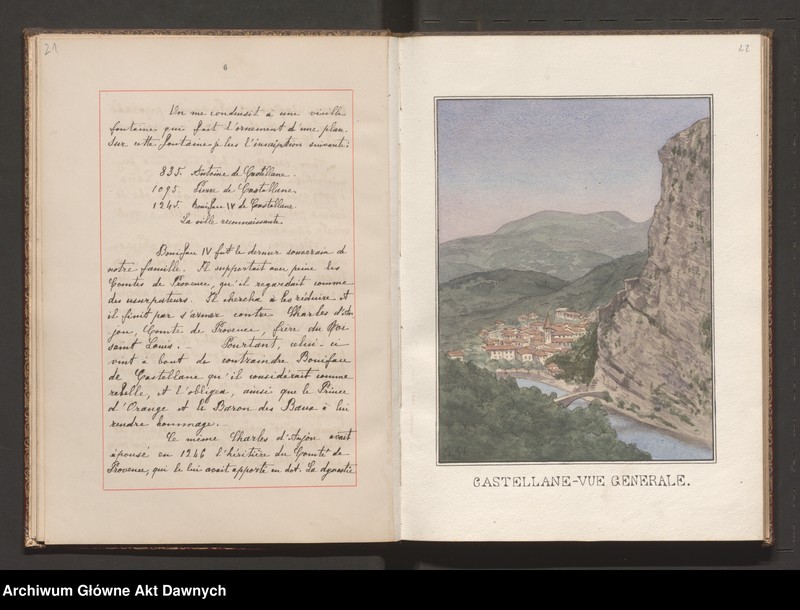 21
6
On me conduisit à une vieille
fontaine qui fait l'ornement d'une plan.
Sur cette fontaine je lus l'inscription suivante:
835. Antoine de Castellane.
1095. Pierre de Castellane.
1245. Boniface IV de Castellane.
La ville reconnaissante.
Boniface IV fut le dernier souverain de
notre famille. Il supportait avec peine les
Comtes de Provence, qu'il regardait comme
des usurpateurs. Il chercha à les réduire et
il finit par s'armer contre Charles d'An-
jou, Comte de Provence, frère du Roi
saint Louis. - Pourtant, celui-ci
vint à bout de contraindre Boniface
de Castellane qu'il considérait comme
rebelle, et l'obligea, ainsi que le Prince
d'Orange et le Baron des Baux à lui
rendre hommage.
Ce même Charles d'Anjou avait
épousé en 1246 l'héritière du Comté de
Provence, qui le lui avait apporté en dot. La dynastie
22
CASTELLANE-VUE GENERALE.
Archiwum Główne Akt Dawnych